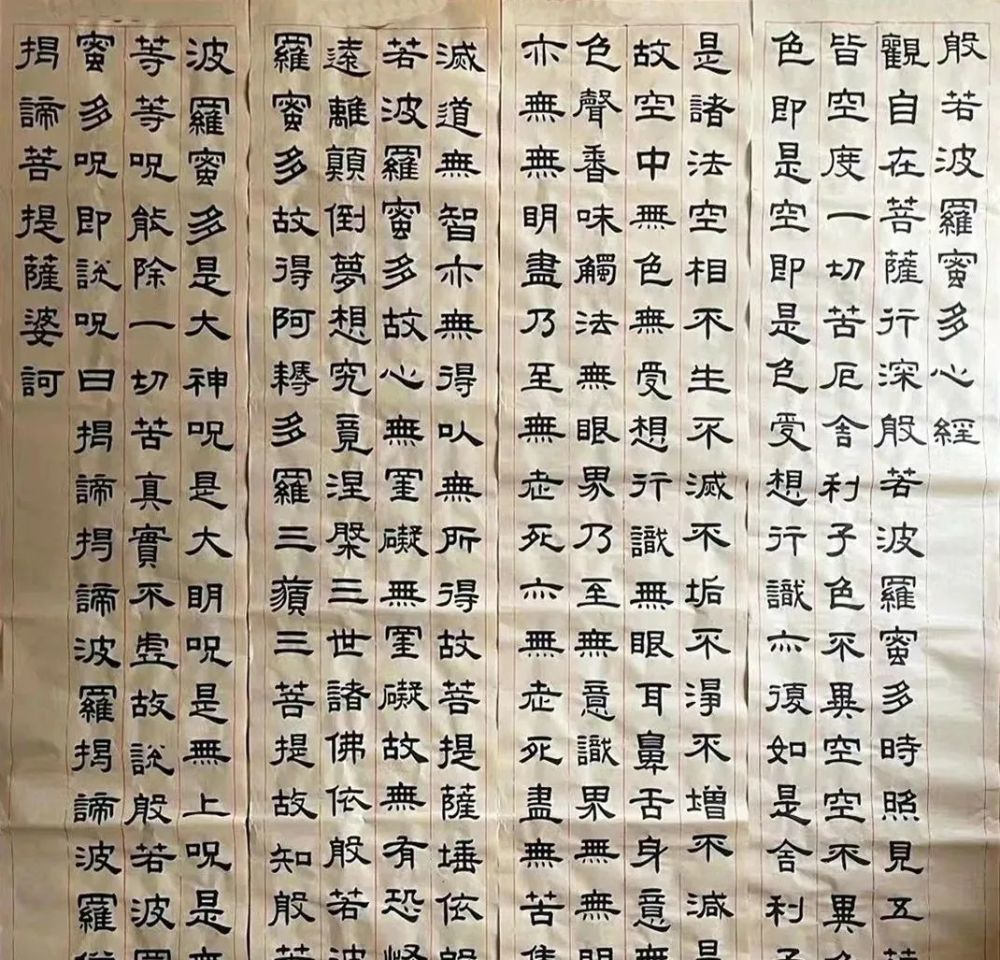 般若波羅蜜多心經
觀自在菩薩行深般若波羅蜜多時照見五
皆空度一切苦厄舍利子色不異空空不異
色即是空即是色受想行識亦復如是舍利子
是諸法空相不生不滅不垢不淨不增不減是
故空中無色無受想行識無眼耳鼻舌身意無
色聲香味觸法無眼界乃至無意識界無無明
亦無無明盡乃至無老死亦無老死盡無苦集
滅道無智亦無得以無所得故菩提薩埵依般
若波羅蜜多故心無罣礙無罣礙故無有恐
遠離顛倒夢想究竟涅槃三世諸佛依般若波
羅蜜多故得阿耨多羅三藐三菩提故知般若
波羅蜜多是大神呪是大明呪是無上呪是無
等等呪能除一切苦真實不虛故說般若波羅
蜜多呪即說呪曰揭諦揭諦波羅揭諦波羅僧
揭諦菩提薩婆訶